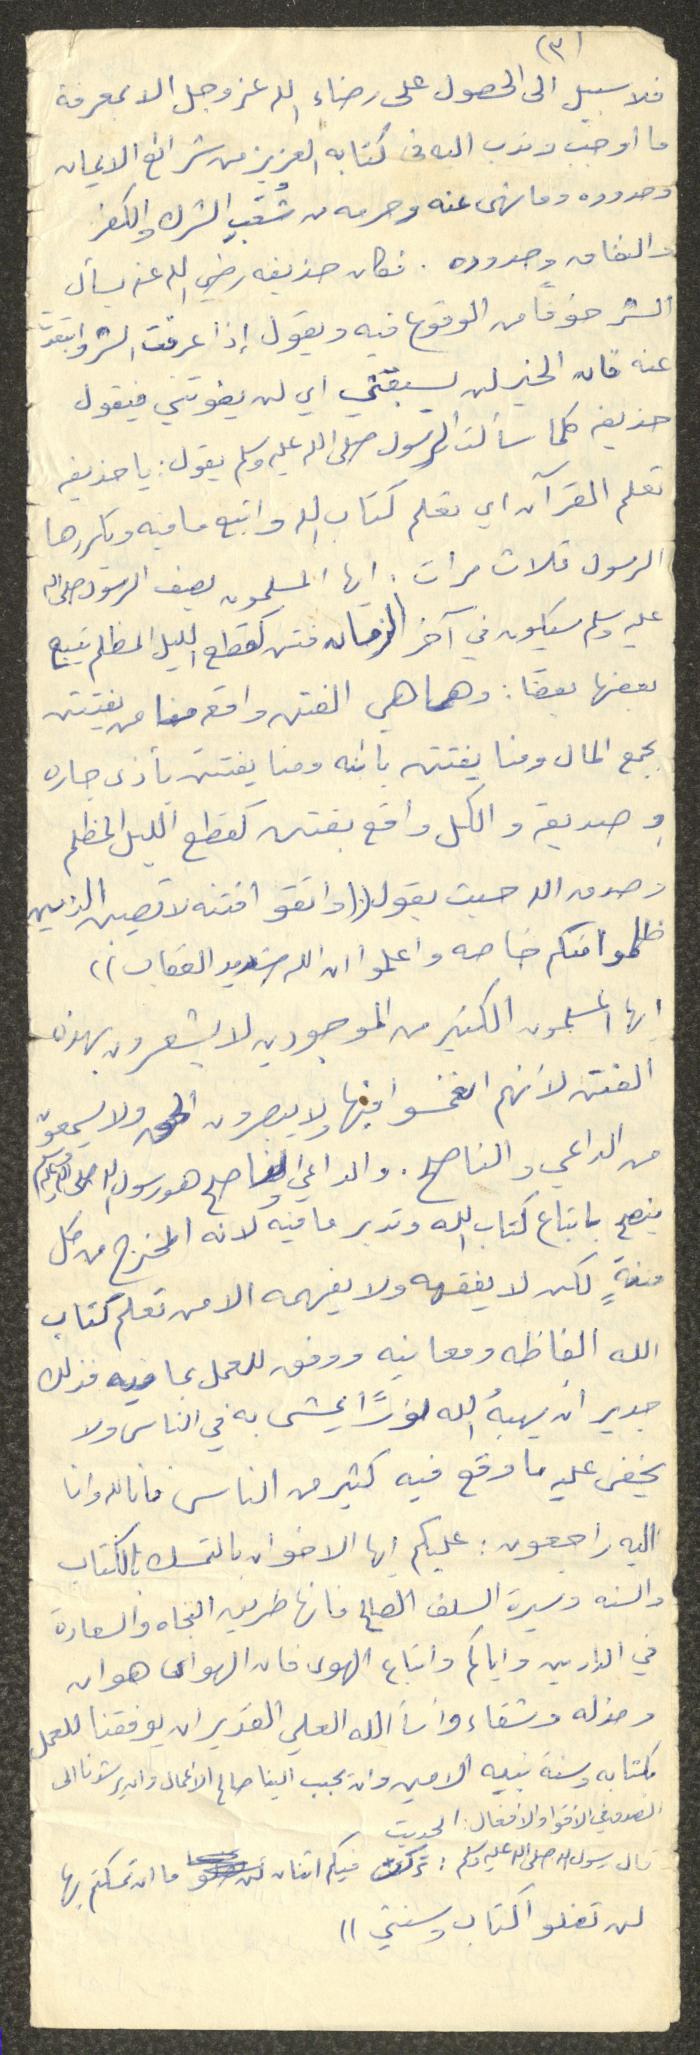 (٣)
فلا سبيل الى الحصول على رضاء الله عز وجل الا بمعرفة
ما أوجب وندب اليه في كتابه العزيز من شرائع الايمان
وحدوده وما نهى عنه وحرمه من شُعَبِ الشرك والكفر
والنفاق وحدوده . فكان حذيفه رضي الله عنه يسأل
الشر خوفًا من الوقوع فيه ويقول إذا عرفت الشر وابتعدت
عنه فان الخير لن يسبقني اي لن يفوتني فيقول
حذيفه كلما سألت الرسول صلى الله عليه وسلم يقول : يا حذيفه
تعلم القرآن اي تعلم كتاب الله واتبع ما فيه وكررها
الرسول ثلاث مرات . ايها المسلمون يصف الرسول صلى الله
عليه وسلم سيكون في آخر الزمان فتن كقطع الليل المظلم يتبع
بعضها بعضا : وهما هي الفتن واقعه منا من يفتتن
بجمع المال ومنا يفتتن بابنه ومنا يفتتن بأذى جاره
و صديقه والكل واقع بفتن كقطع الليل المظلم
وصدق الله حيث يقول (( واتقوا فتنه لا تصيبن الذين
ظلموا منكم خاصه واعلموا ان الله شديد العقاب ))
ايها المسلمون الكثير من الموجودين لا يشعرون بهذه
الفتن لأنهم انغمسوا فيها ولا يبصرون الحق ولا يسمعون
من الداعي والناصح . والداعي والناصح هو رسول الله صلى الله عليه وسلم
ينصح باتباع كتاب الله وتدبر ما فيه لانه المخرج من كل
فتنةٍ لكن لا يفقهه ولا يفهمه الا من تعلم كتاب
الله الفاظه ومعانيه ووفق للعمل بما فيه فذلك
جدير ان يهبهُ الله نورًا يمشي به في الناس ولا
يخفى عليه ما وقع فيه كثير من الناس فانا لله وانا
اليه راجعون : عليكم ايها الاخوان بالتمسك بالكتاب
والسنه وسيرة السلف الصالح فانها طريق النجاه والسعادة
في الدارين واياكم واتباع الهوى فان الهوى هوان
ومذله وشقاء واسأ الله العلي القدير ان يوفقنا للعمل
بكتابه وسنة نبيه الامين وان يحبب الينا صالح الاعمال وان يرشدنا الى
الصدق في الاقوا والافعال . الحديث
قال رسول الله صلى الله عليه وسلم : تركت فيكم اثنان لن ما ان تمسكتم بها
لن تضلوا كتاب وسنتي ))